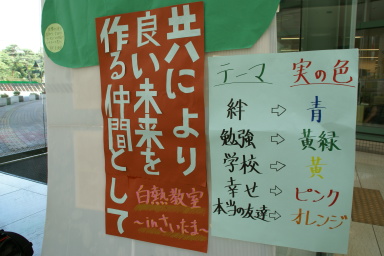 共により
良い未来を
作る仲間として
白熱教室
～inさいたま～
テーマ 実の色
絆 ⇨ 青
勉強 ⇨ 黄緑
学校 ⇨ 黄
幸せ ⇨ ピンク
本当の友達 ⇨ オレンジ